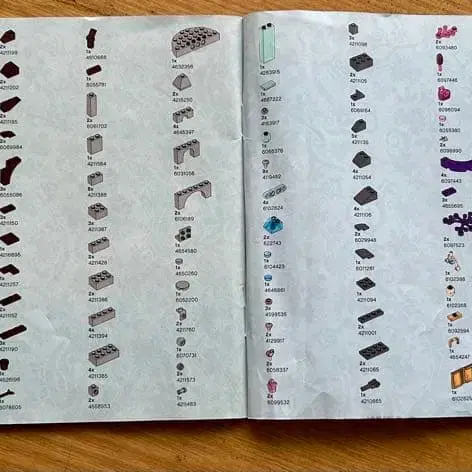 2x
4211199
2x
4211202
2x
4211185
2x
6069984
3x
6055086
3x
4211150
1x
4216695
1x
4211257
2x
4211152
3x
4211190
1x
4626696
1x
6078605
1x
4610668
1x
6055781
2x
6061702
1x
4211584
8x
4211388
3x
4211387
2x
4211428
2x
4211386
4x
4211394
1x
4211385
2x
4558953
1x
4632356
2x
4216250
6x
4645397
1x
6031056
2x
6106189
1x
4654580
1x
4650260
1x
6052200
2x
4211760
1x
6070731
1x
4211573
1x
4211483
1x
4283915
1x
4667222
3x
4163917
1x
6065376
8x
4119482
4x
6102824
2x
622743
1x
6104423
1x
4646861
3x
4599535
1x
4129917
2x
6058337
2x
6099532
3x
4211098
2x
4211105
1x
6069164
5x
421135
5x
4211054
4x
4211106
2x
6029948
1x
6011261
1x
4211094
2x
4211001
2x
4211065
1x
4210865
2x
6093480
1x
6097446
6098094
1x
6055380
2x
6098490
1x
6097443
3x
4655695
2x
6097523
1x
6102366
1x
6102368
1x
6092594
1x
4654247
1x